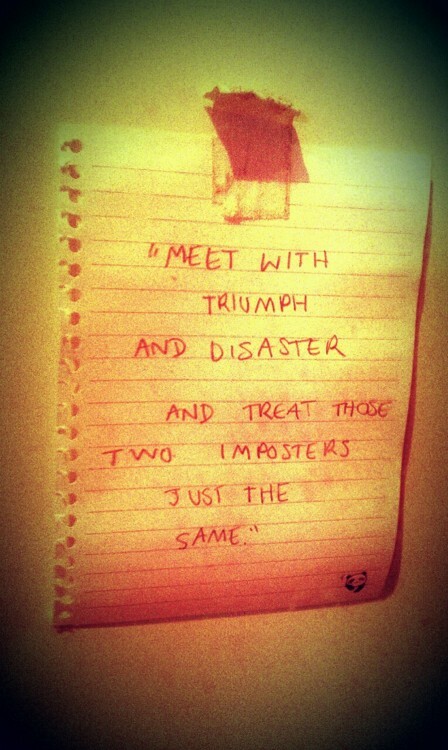 "MEET WITH
TRIUMPH
AND DISASTER
AND TREAT THOSE
TWO IMPOSTERS
JUST THE
SAME."